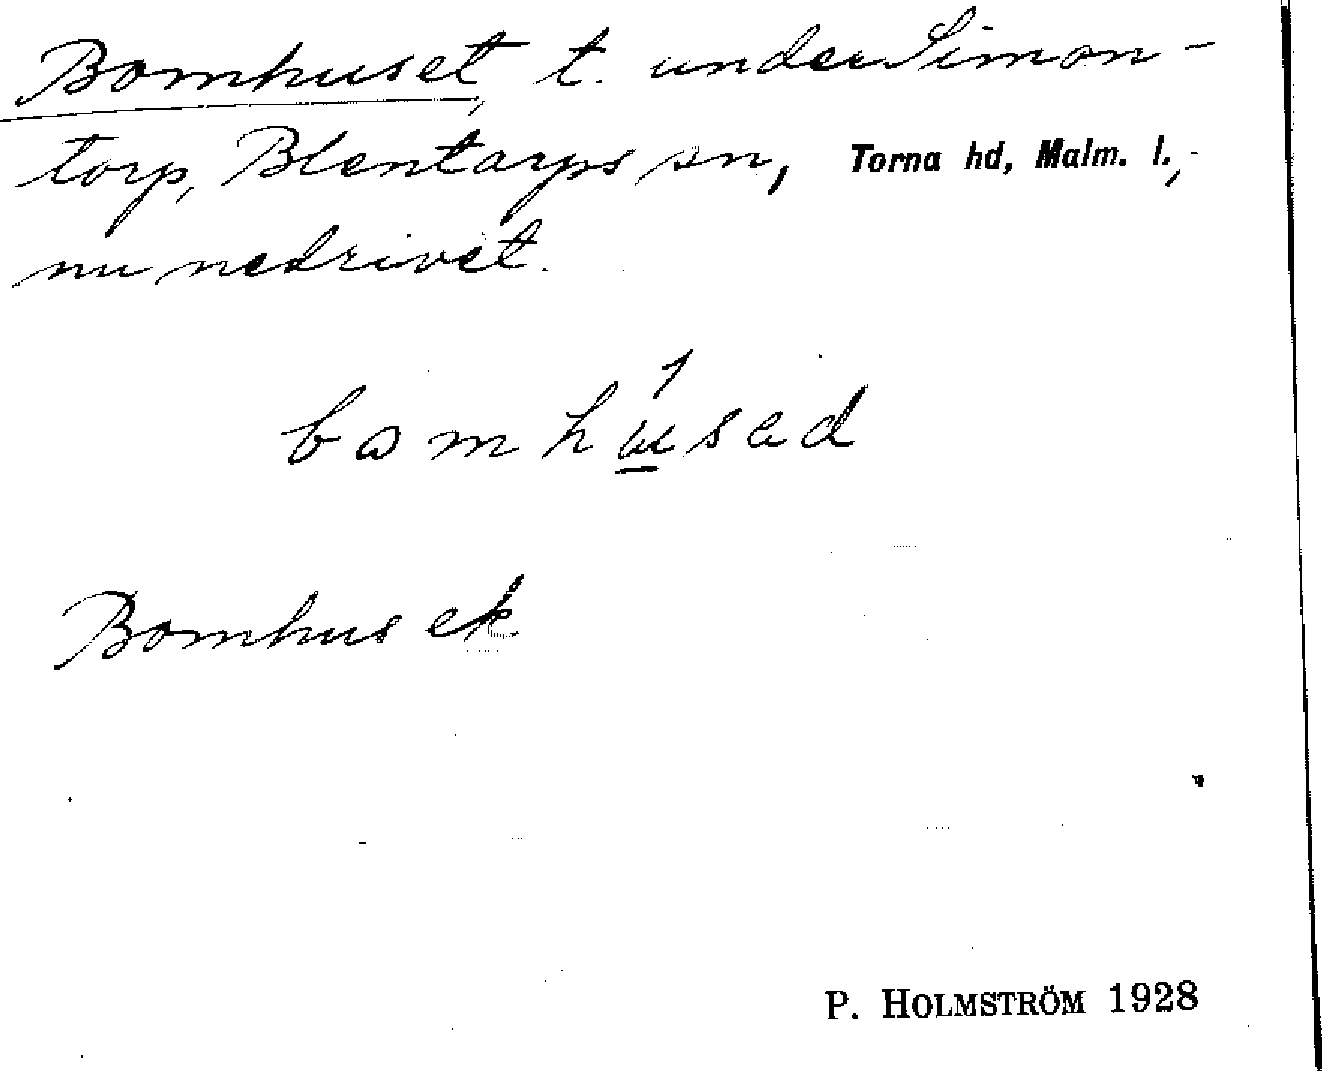 Bomhuset, t. under Simon-
torp, Blentarps sn, Torna hd, Malm. l.,
nu nedrivet.
bomhúsad
Bomhus ek
P. HOLMSTRÖM 1928